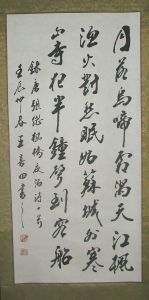 月落烏啼霜滿天江楓
漁火對愁眠姑蘇城外寒
山寺夜半鐘聲到客船
錄唐張繼楓橋夜泊詩一首
壬辰仲春王喜田書